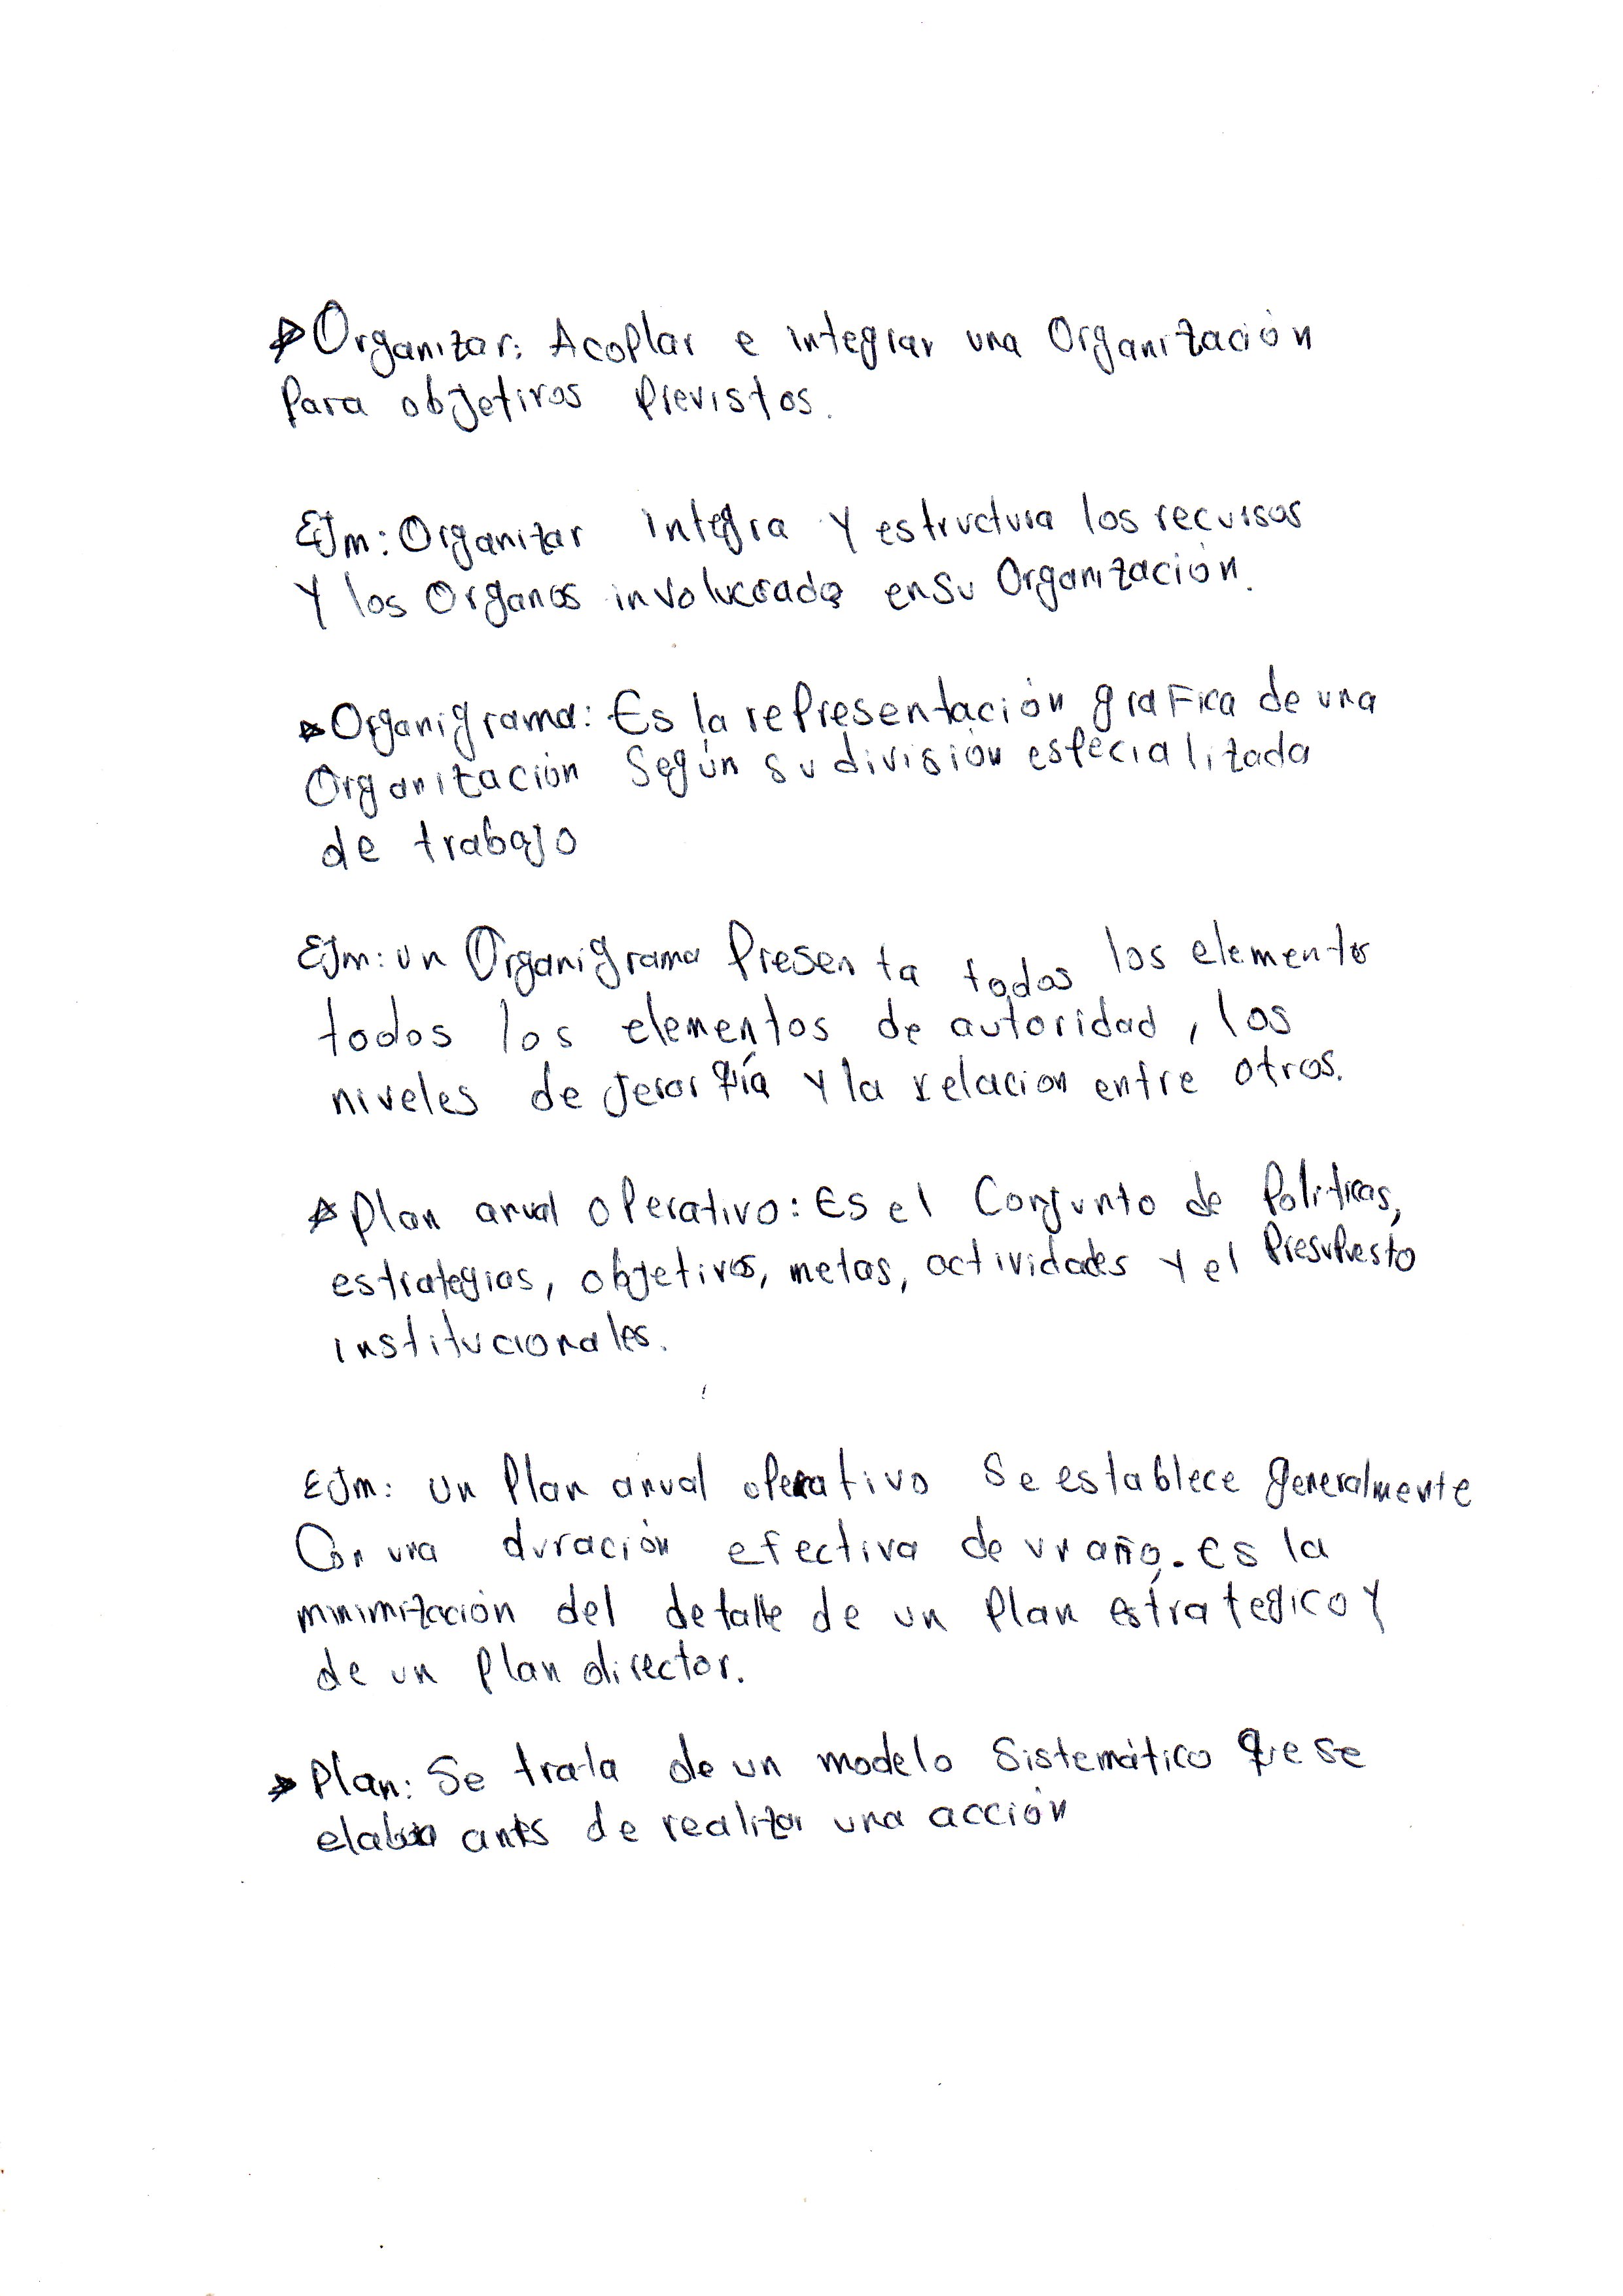 Organizar: Acoplar e integrar una Organización
Para objetivos Previstos.
EJm: Organizar integra y estructura los recursos
Y los Organos involucrados en su Organización.
Organigrama: Es la representación grafica de una
Organización Según su división especializada
de trabajo
EJm: un Organigrama Presenta todos los elementos
todos los elementos de autoridad, los
niveles de Jerarqía y la relacion entre otros.
Plan anual operativo: Es el Conjunto de Politicas,
estrategias, objetivos, metas, actividades y el Presupuesto
institucionales.
EJm: un Plan anual operativo Se establece generalmente
Con una duración efectiva de un año. es la
minimización del detalle de un Plan estrategico y
de un Plan director.
Plan: Se trata de un modelo Sistemático que se
elabora antes de realizar una acción